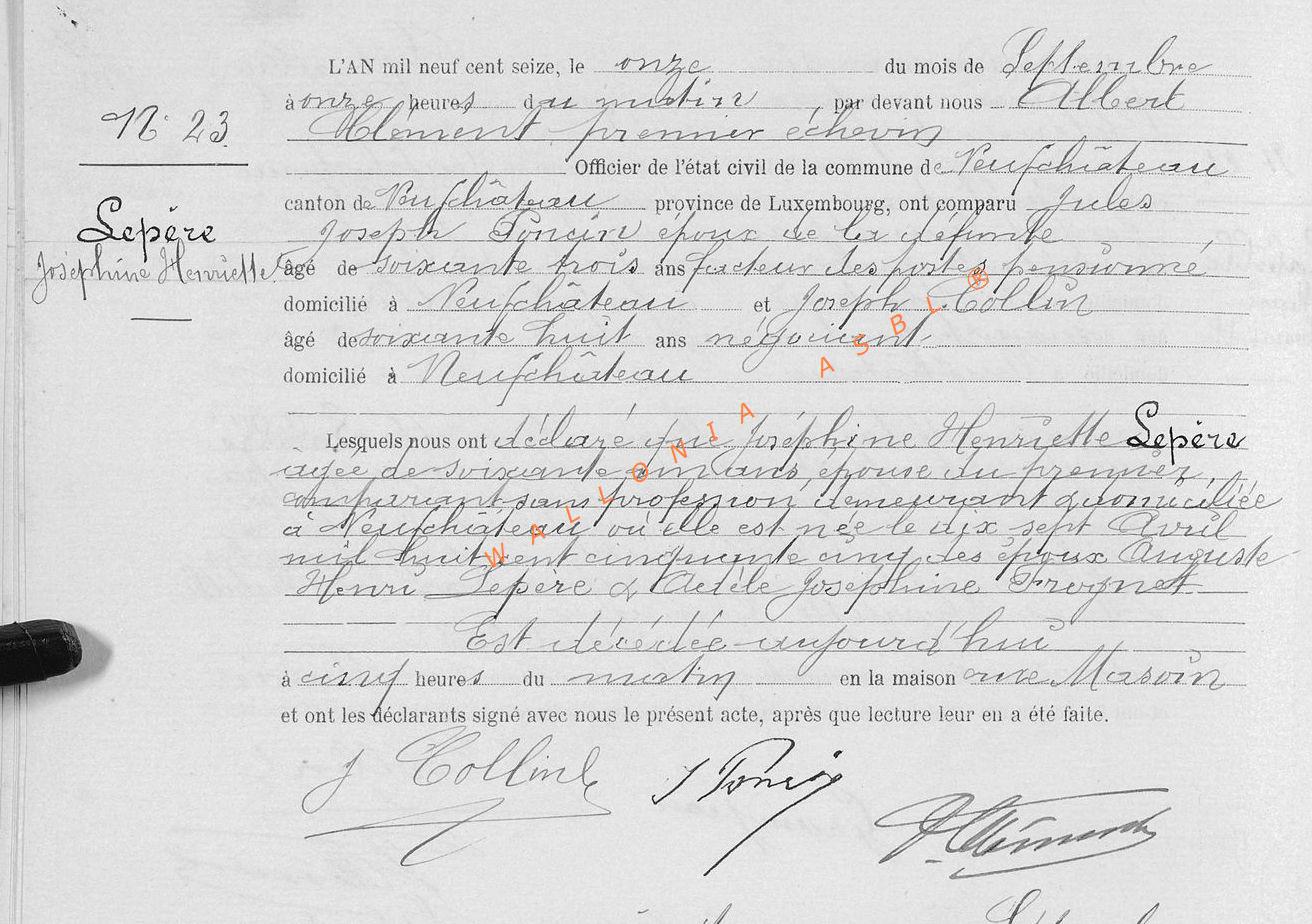 L'AN mil neuf cent seize, le onze du mois de Septembre
à onze heures du matin, par devant nous Albert
Clément premier échevin
N° 23
Officier de l'état civil de la commune de Neufchâteau
canton de Neufchâteau province de Luxembourg, ont comparu Jules
Lepère
Joseph Poncin époux de la défunte
Joséphine Henriette
âgé de soixante trois ans facteur des postes pensionné
domicilié à Neufchâteau et Joseph Collin
âgé de soixante huit ans négociant
domicilié à Neufchâteau
WALLONIA ASBL ®
Lesquels nous ont déclaré que Joséphine Henriette Lepère
âgée de soixante un ans, épouse du premier
comparant, sans profession, demeurant & domiciliée
à Neufchâteau où elle est née le dix sept Avril
mil huit cent cinquante cinq des époux Auguste
Henri Lepère & Adèle Joséphine Frognet
Est décédée aujourd'hui
à cinq heures du matin en la maison rue Masoin
et ont les déclarants signé avec nous le présent acte, après que lecture leur en a été faite.
J Collin
J Poncin
A. Clément